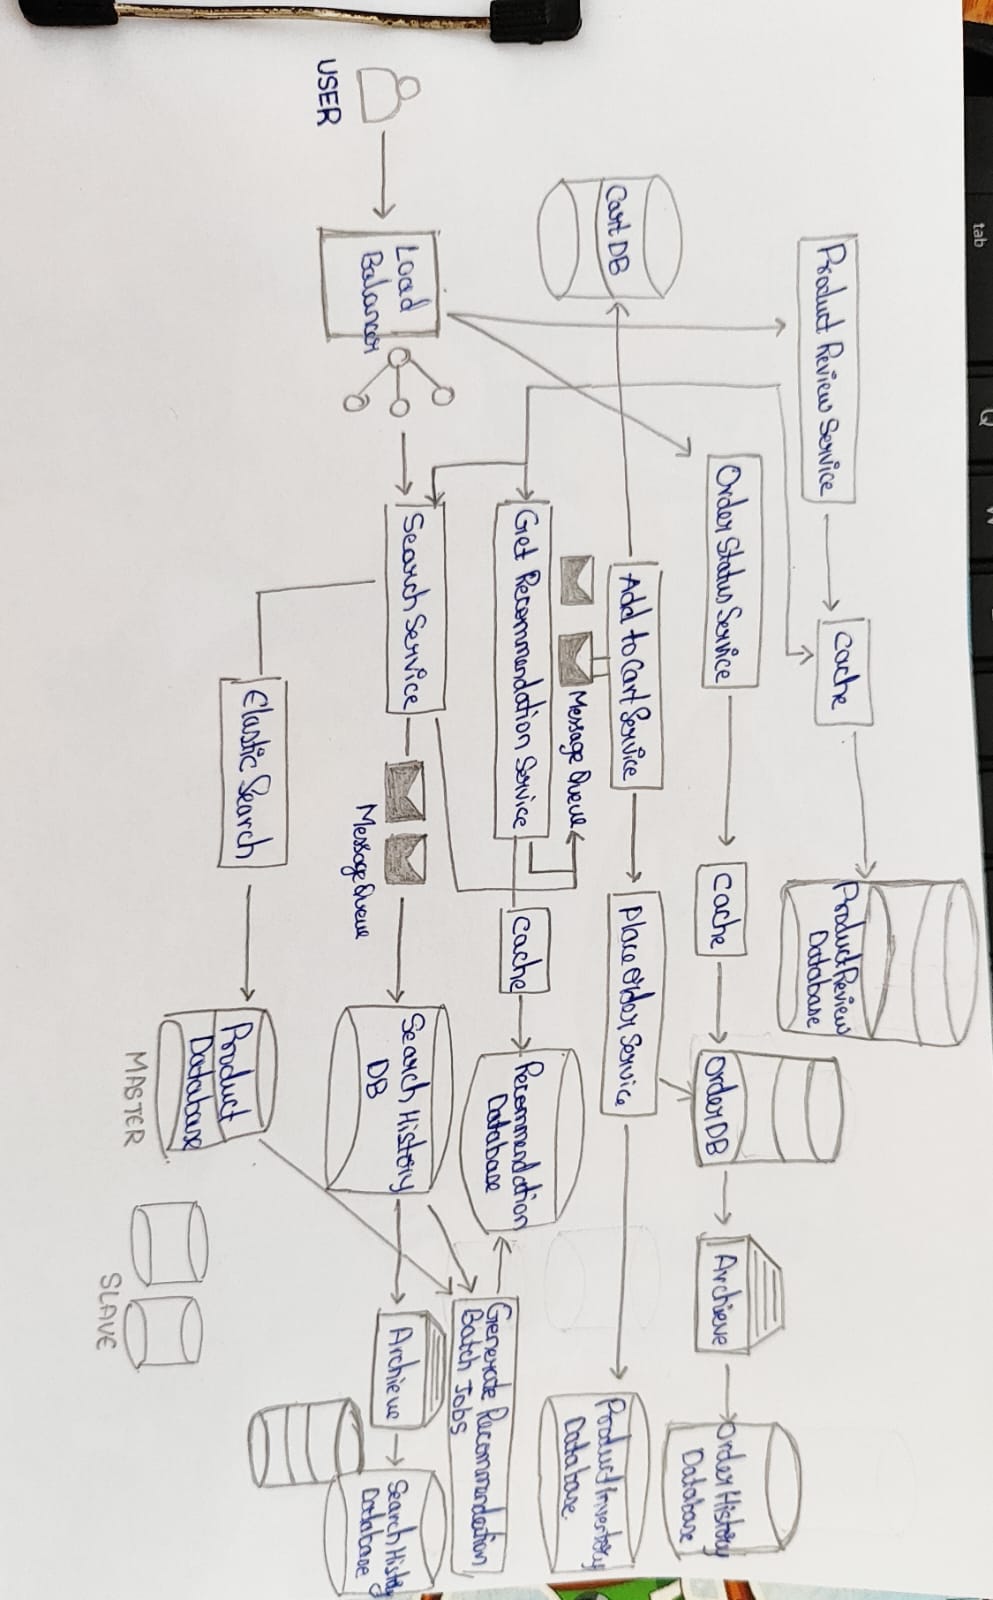 tab
Q
W
Product Review Service
Cache
Product Review
Database
Order Status Service
Cache
Order DB
Archieve
Order History
Database
Cart DB
Add to Cart Service
Place Order Service
Product Inventory
Database
Message Queue
Get Recommendation Service
Cache
Recommendation
Database
Generate Recommendation
Batch Jobs
USER
Load
Balancer
Search Service
Message Queue
Search History
DB
Archieve
Search History
Database
Elastic Search
Product
Database
MASTER
SLAVE